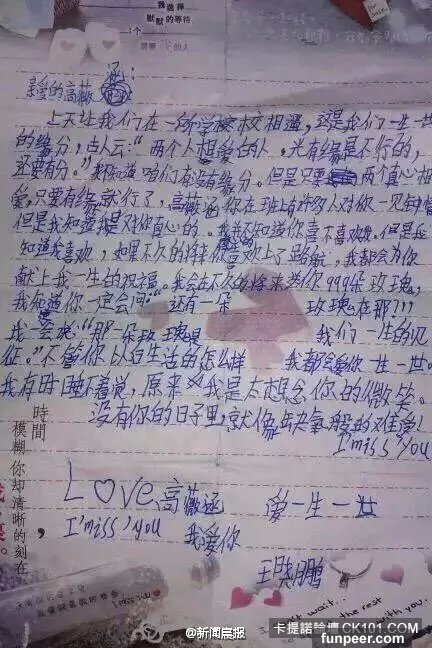 我選擇
默默的等待
1个
需要 的人
亲爱的高薇涵:
上天让我们在一所学校相遇，这是我们一生一世
的缘分，古人云:“两个人想爱的人，光有缘是不行的，
还要有分。”我不知道咱们有没有缘分。但是只要两个真心相
爱，只要有缘就行了，高薇涵你在班上有许多人对你一见钟情
但是我知道我是对你真心的。我并不知道你喜不喜欢我，但是我
知道我喜欢，如果不久的将来你喜欢上了路航，我都会为你
献上我一生的祝福。我会在不久的将来送你999朵玫瑰，
我知道你一定会问:“还有一朵 玫瑰在那???
我会说:“那一朵玫瑰是 我们一生的见
证。”不管你以后生活的怎么样 我都会爱你一生一世。
我有时睡不着觉，原来我是太想念你的微笑。
没有你的日子里，就像缺氧般的难受!
I'miss'you
時間
模糊你却清晰的刻在
Love高薇涵 爱一生一世
I'miss'you 我爱你
王晓鹏
I miss you
wait
the rest
with you.
@新闻晨报
卡提諾論壇 CK101.COM
funpeer.com